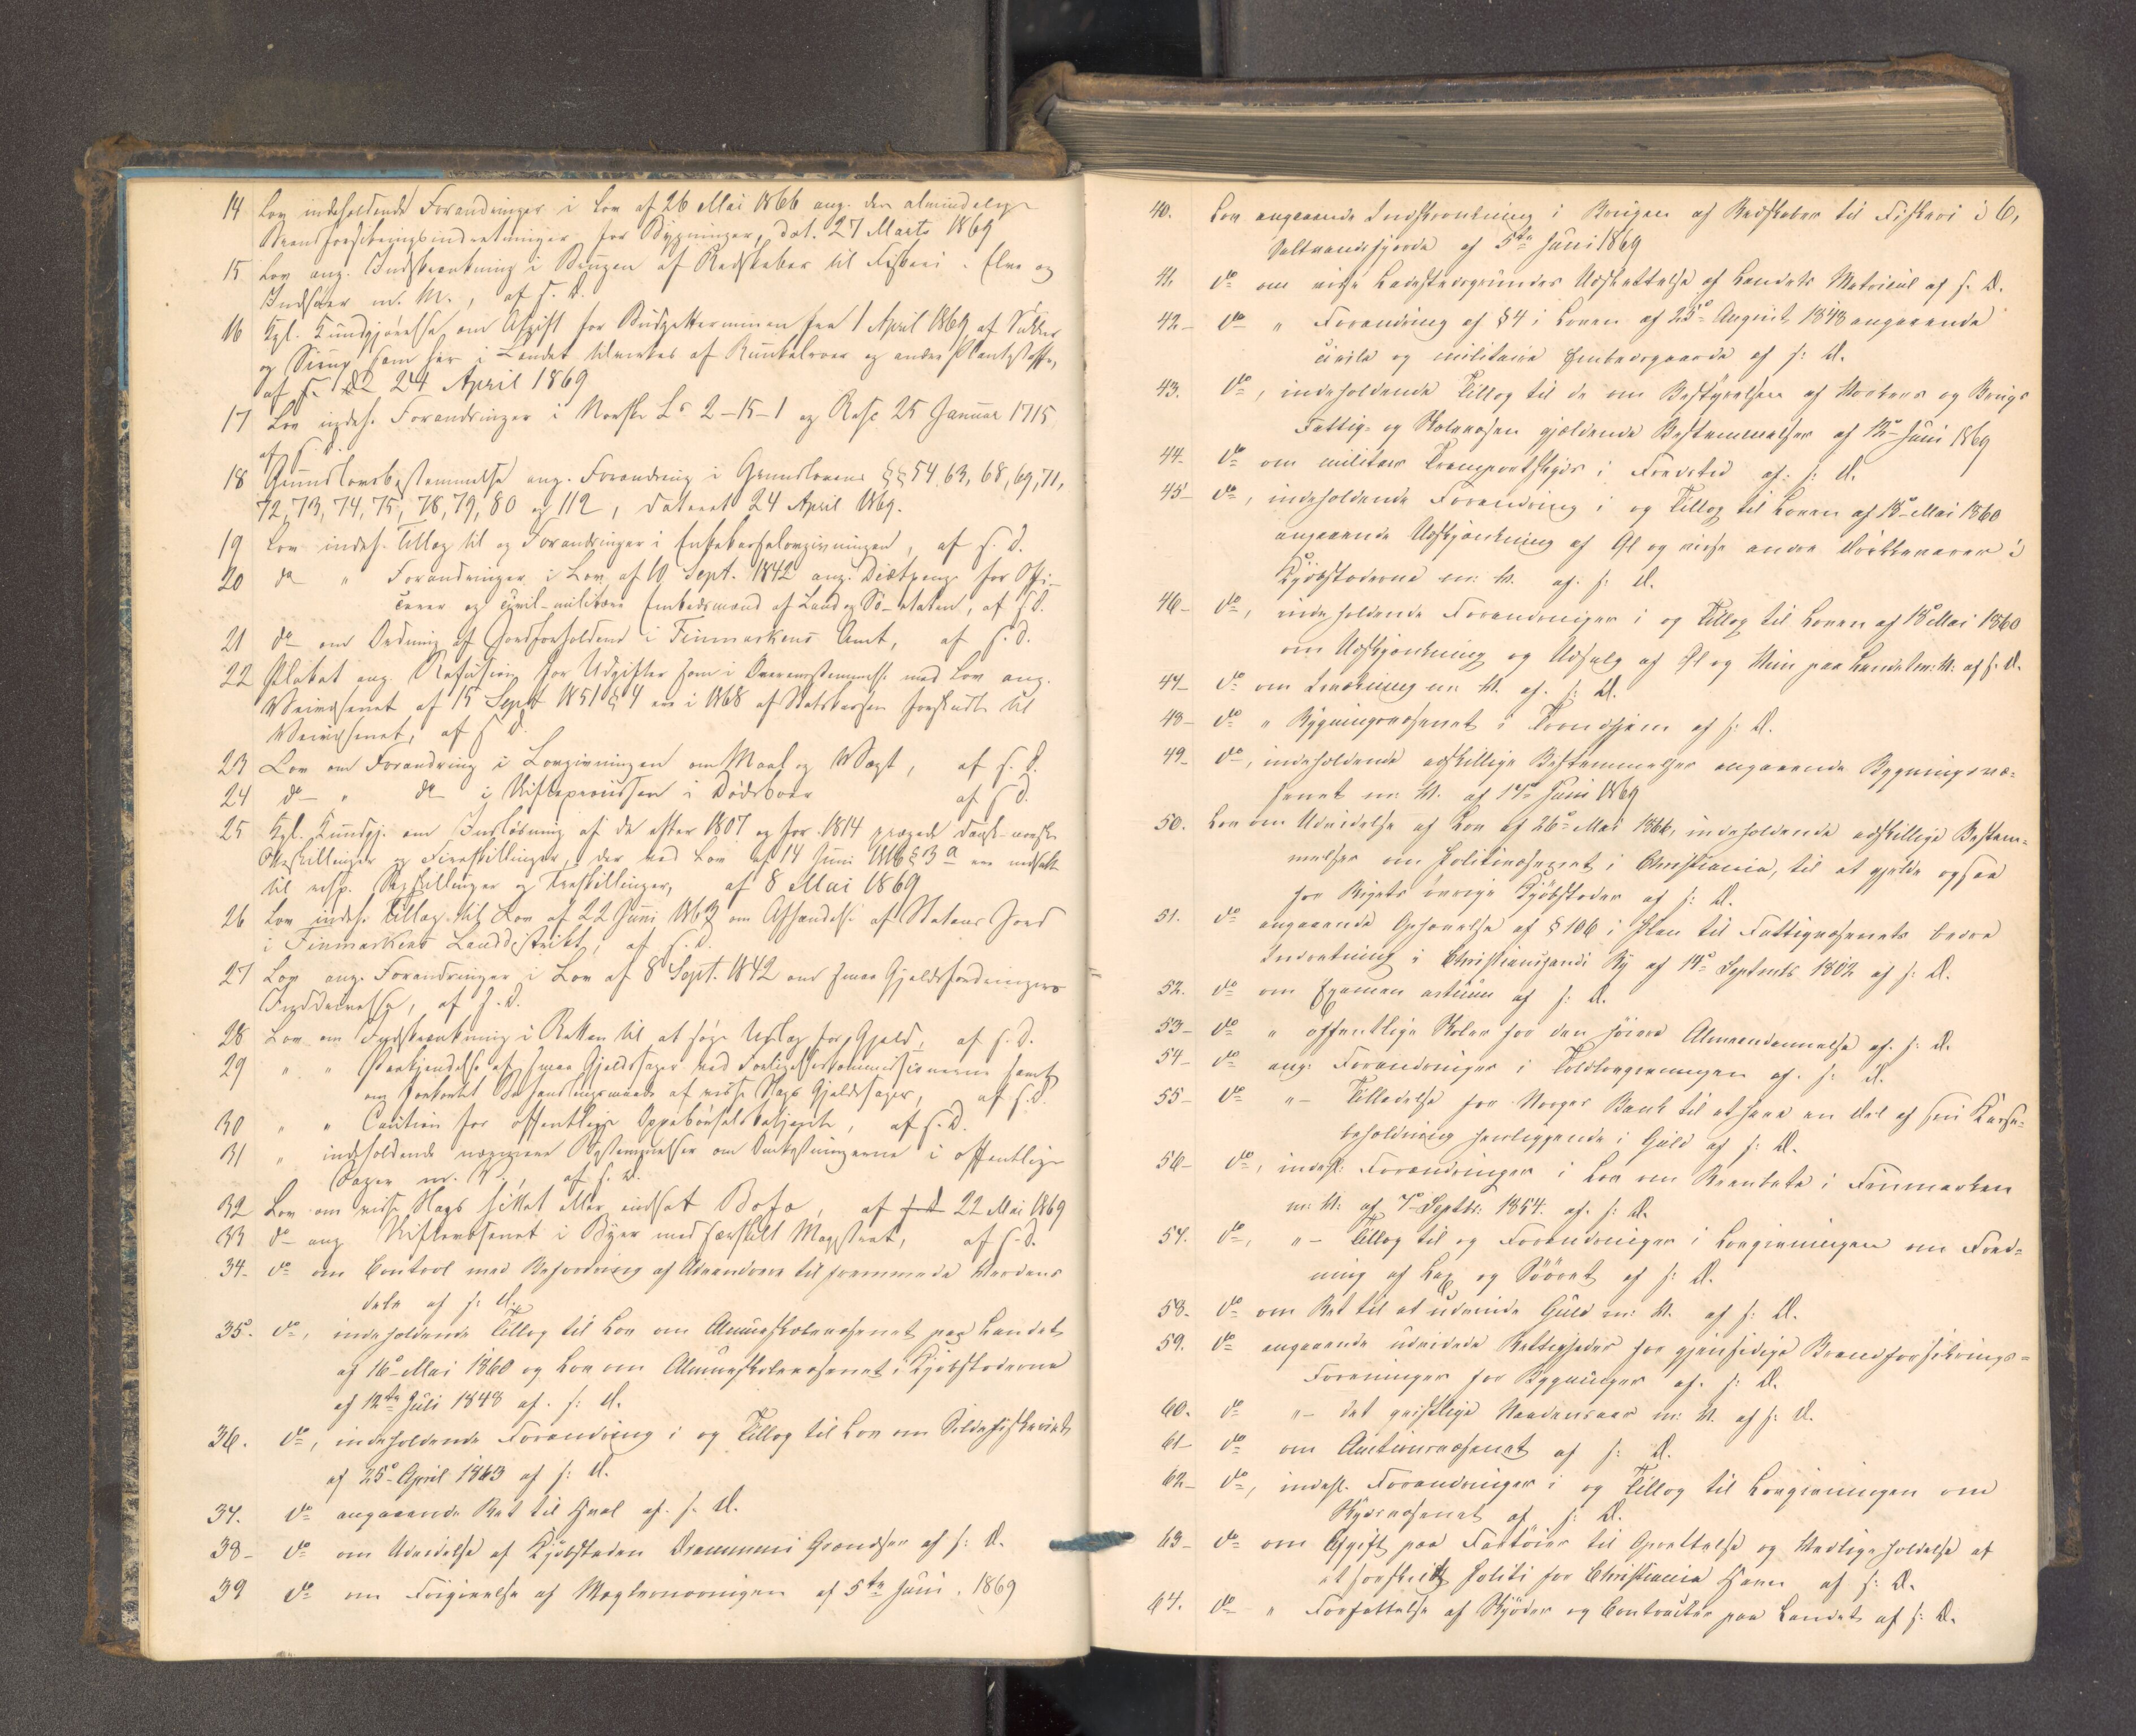 14 Lov indeholdende Forandringer i Lov af 26 Mai 1866 ang. den almindelige
Brandforsikringsindretninger for Bygninger, dat. 27 Marts 1869
15 Lov ang. Indskrænkning i Brugen af Redskaber til Fiskeri i Elve og
Indsøer m. M., af s. D.
16 Kgl. Kundgjørelse om Afgift for Budgetterminen fra 1 April 1869 af Sukker
og Sirup som her i Landet tilvirkes af Runkelroer og andre Plantestoffe,
af 24 April 1869
17 Lov indeh. Forandringer i Norske Ls 2-15-1 og Resc 25 Januar 1715
af s. D.
18 Grundlovsbestemmelse ang. Forandring i Grundlovens §§ 54, 63, 68, 69, 71,
72, 73, 74, 75, 78, 79, 80 og 112, dateret 24 April 1869.
19 Lov indeh. Tillæg til og Forandringer i Enkekasselovgivningen, af s. D.
20 do " Forandringer i Lov af 10 Sept. 1842 ang. Diætpenge for Offi-
cerer og civil-militære Embedsmænd af Land og Sö-etaten, af s. D.
21 do om Ordning af Jordforholdene i Finmarkens Amt, af s. D.
22 Plakat ang. Refusion for Udgifter som i Overensstemmelse med Lov ang.
Veivæsenet af 15 Sept 1851 § 4 ere i 1868 af Statskassen forskudte til
Veivæsenet, af s. D.
23 Lov om Forandring i Lovgivningen om Maal og Vægt, af s. D.
24 do " do i Skifteprocessen i Dødsboer af s. D.
25 Kgl. Kundgj. om Indløsning af de efter 1807 og før 1814 prægede dansk-norske
Otteskillinger og Fireskillinger, der ved Lov af 14 Juni 1816 § 3 a ere nedsatte
til resp. Sexskillinger og Treskillinger, af 8 Mai 1869
26 Lov indeh. Tillæg til Lov af 22 Juni 1863 om Afhændelse af Statens Jord
i Finmarkens Landdistrikt, af s. D.
27 Lov ang. Forandringer i Lov af 8 Sept. 1842 om smaa Gjeldsfordringers
Inddrivelse, af s. D.
28 Lov om Indskrænkning i Retten til at søge Udlæg for Gjeld, af s. D.
29 " " Paakjendelse af smaa Gjeldssager ved Forligelseskommissionerne samt
om forkortet Behandlingsmaade af visse Slags Gjeldssager, af s. D.
30 " " Caution for offentlige Oppebørselsbetjente, af s. D.
31 " indeholdende nærmere Bestemmelser om Omkostningerne i offentlige
Sager m. V., af s. D.
32 Lov om visse Slags sikket eller indsat Bofæ, af s. D. 22 Mai 1869
33 do ang. Skiftevæsenet i Byer med særskilt Magistrat, af s. D.
34- do om Control med Befordring af Udvandrere til fremmede Verdens-
dele af s: D.
35. do, indeholdende Tillæg til Lov om Almueskolevæsenet paa Landet
af 16 Mai 1860 og Lov om Almueskolevæsenet i Kjøbstæderne
af 12te Juli 1848 af. s: D.
36. do, indeholdende Forandring i og Tillæg til Lov om Sildefiskeriet
af 25 April 1863 af s: D.
37. do angaaende Ret til Hval af. s. D.
38- do om Udvidelse af Kjøbstaden Drammens Grændser af s: D.
39 do om Frigivelse af Mæglernæringen af 5te Juni. 1869
40. Lov angaaende Indskrænkning i Brugen af Redskaber til Fiskeri i
Saltvandsfjorde af 5te Juni 1869
41. do om visse Ladestedsgrunders Udskettelse af Landets Matricul af s. D.
42- do " Forandring af § 4 i Loven af 25 August 1848 angaaende
civile og militaire Embedsgaarde af s: D.
43. do, indeholdende Tillæg til de om Bestyrelsen af Værkers og Brugs
Fattig- og Skolevæsen gjældende Bestemmelser af 12 Juni 1869
44- do om militær Transportskyds i Fredstid af: s: D.
45- do, indeholdende Forandring i og Tillæg til Loven af 18 Mai 1860
angaaende Udskjænkning af Øl og visse andre Drikkevarer i
Kjøbstæderne m: V. af. s: D.
46- do, indeholdende Forandringer i og Tillæg til Loven af 18 Mai 1860
om Udskjænkning og Udsalg af Øl og Vin paa Landet m: V: af s: D.
47- do om Inrulering m: V. af. s: D.
48- do " Bygningsvæsenet i Trondhjem af s: D.
49- do, indeholdende adskillige Bestemmelser angaaende Bygningsvæ-
senet m: V. af 17 Juni 1869
50. Lov om Udvidelse af Lov af 26 Mai 1866, indeholdende adskillige Bestem-
melser om Politivæsenet i Christiania, til at gjælde ogsaa
for Rigets øvrige Kjøbstæder af s: D.
51. do angaaende Ophævelse af § 106 i Plan til Fattigvæsenets bedre
Indretning i Christiansands By af 17 Septmbr 1802 af s: D.
52. do om Examen artium af s: D.
53- do " offentlige Skoler for den høiere Almeendannelse af. s: D.
54- do ang: Forandringer i Toldlovgivningen af. s: D.
55- do "- Tilladelse for Norges Bank til at have en Del af sin Kasse-
beholdning henliggende i Guld af s: D.
56- do, indeh: Forandringer i Lov om Brændte i Finmarken
m: V: af 7 Septbr: 1854. af. s: D.
57. do, "- Tillæg til og Forandringer i Lovgivningen om Fred-
ning af Lax og Söörret af s: D.
58. do om Ret til at udvinde Guld m: V. af s: D.
59. do angaaende udvidede Rettigheder for gjensidige Brandforsikrings-
Foreninger for Bygninger af. s: D.
60. do "- det geistlige Naadensaar m: V. af s: D.
61- do om Auctionsvæsenet af s: D.
62- do, indeh. Forandringer i og Tillæg til Lovgivningen om
Skydsvæsenet af s: D.
63- do om Afgift paa Fartöier til Oprettelse og Vedligeholdelse af
et særskilt Politi for Christiania Havn af s: D.
64. do " Forfattelse af Skjöder og Contracter paa Landet af s: D.